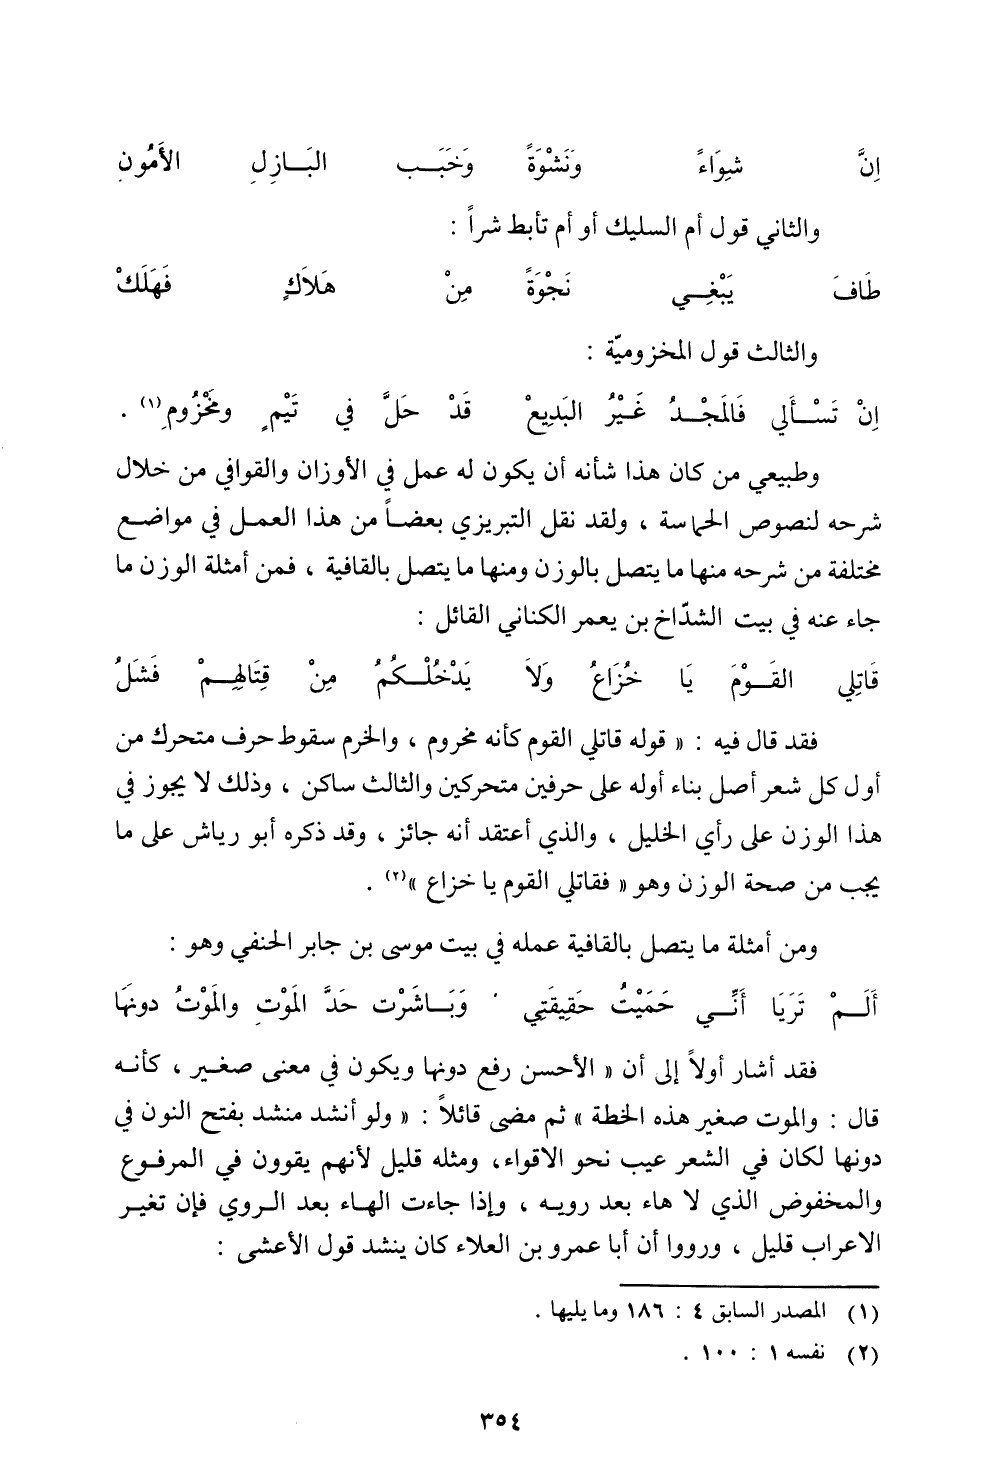 اِنَّ شِوَاءً وَنَشْوَةً وَخَبَـبِ البَـازِلِ الأَمُونِ
والثاني قول أم السليك أو أم تأبط شراً :
طَافَ يَبْغِـي نَجْوَةً مِنْ هَلاَكٍ فَهَلَكْ
والثالث قول المخزوميّة :
اِنْ تَسْـأَلي فَالمَجْـدُ غَيْرُ البَدِيعْ قَدْ حَلَّ في تَيْمٍ ومَخْزُومِ(١) .
وطبيعي من كان هذا شأنه أن يكون له عمل في الأوزان والقوافي من خلال
شرحه لنصوص الحماسة ، ولقد نقل التبريزي بعضـاً من هذا العمـل في مواضـع
مختلفة من شرحه منها ما يتصل بالوزن ومنها ما يتصل بالقافية ، فمن أمثلة الوزن ما
جاء عنه في بيت الشدّاخ بن يعمر الكناني القائل :
قَاتِلي القَـوْمَ يَا خُزَاعُ وَلاَ يَدْخُلْـكُمُ مِنْ قِتَالِهِـمْ فَشَلُ
فقد قال فيه : « قوله قاتلي القوم كأنه مخروم ، والخرم سقوط حرف متحرك من
أول كل شعر أصل بناء أوله على حرفين متحركين والثالث ساكن ، وذلك لا يجوز في
هذا الوزن على رأي الخليل ، والذي أعتقد أنه جائز ، وقد ذكره أبو رياش على ما
يجب من صحة الوزن وهو « فقاتلي القوم يا خزاع »(٢) .
ومن أمثلة ما يتصل بالقافية عمله في بيت موسى بن جابر الحنفي وهو :
أَلَـمْ تَرَيَا أَنَّـي حَمَيْتُ حَقِيقَتِي وَبَـاشَرْت حَدَّ المَوْتِ والمَوْتُ دونهَا
فقد أشار أولاً إلى أن « الأحسن رفع دونها ويكون في معنى صغـير ، كأنـه
قال : والموت صغير هذه الخطة » ثم مضى قائلاً : « ولو أنشد منشد بفتح النون في
دونها لكان في الشعر عيب نحو الاقواء، ومثله قليل لأنهم يقوون في المرفـوع
والمخفوض الذي لا هاء بعد رويـه ، وإذا جاءت الهـاء بعد الـروي فإن تغيـر
الاعراب قليل ، ورووا أن أبا عمرو بن العلاء كان ينشد قول الأعشى :
(١) المصدر السابق ٤ : ١٨٦ وما يليها .
(٢) نفسه ١ : ١٠٠ .
٣٥٤